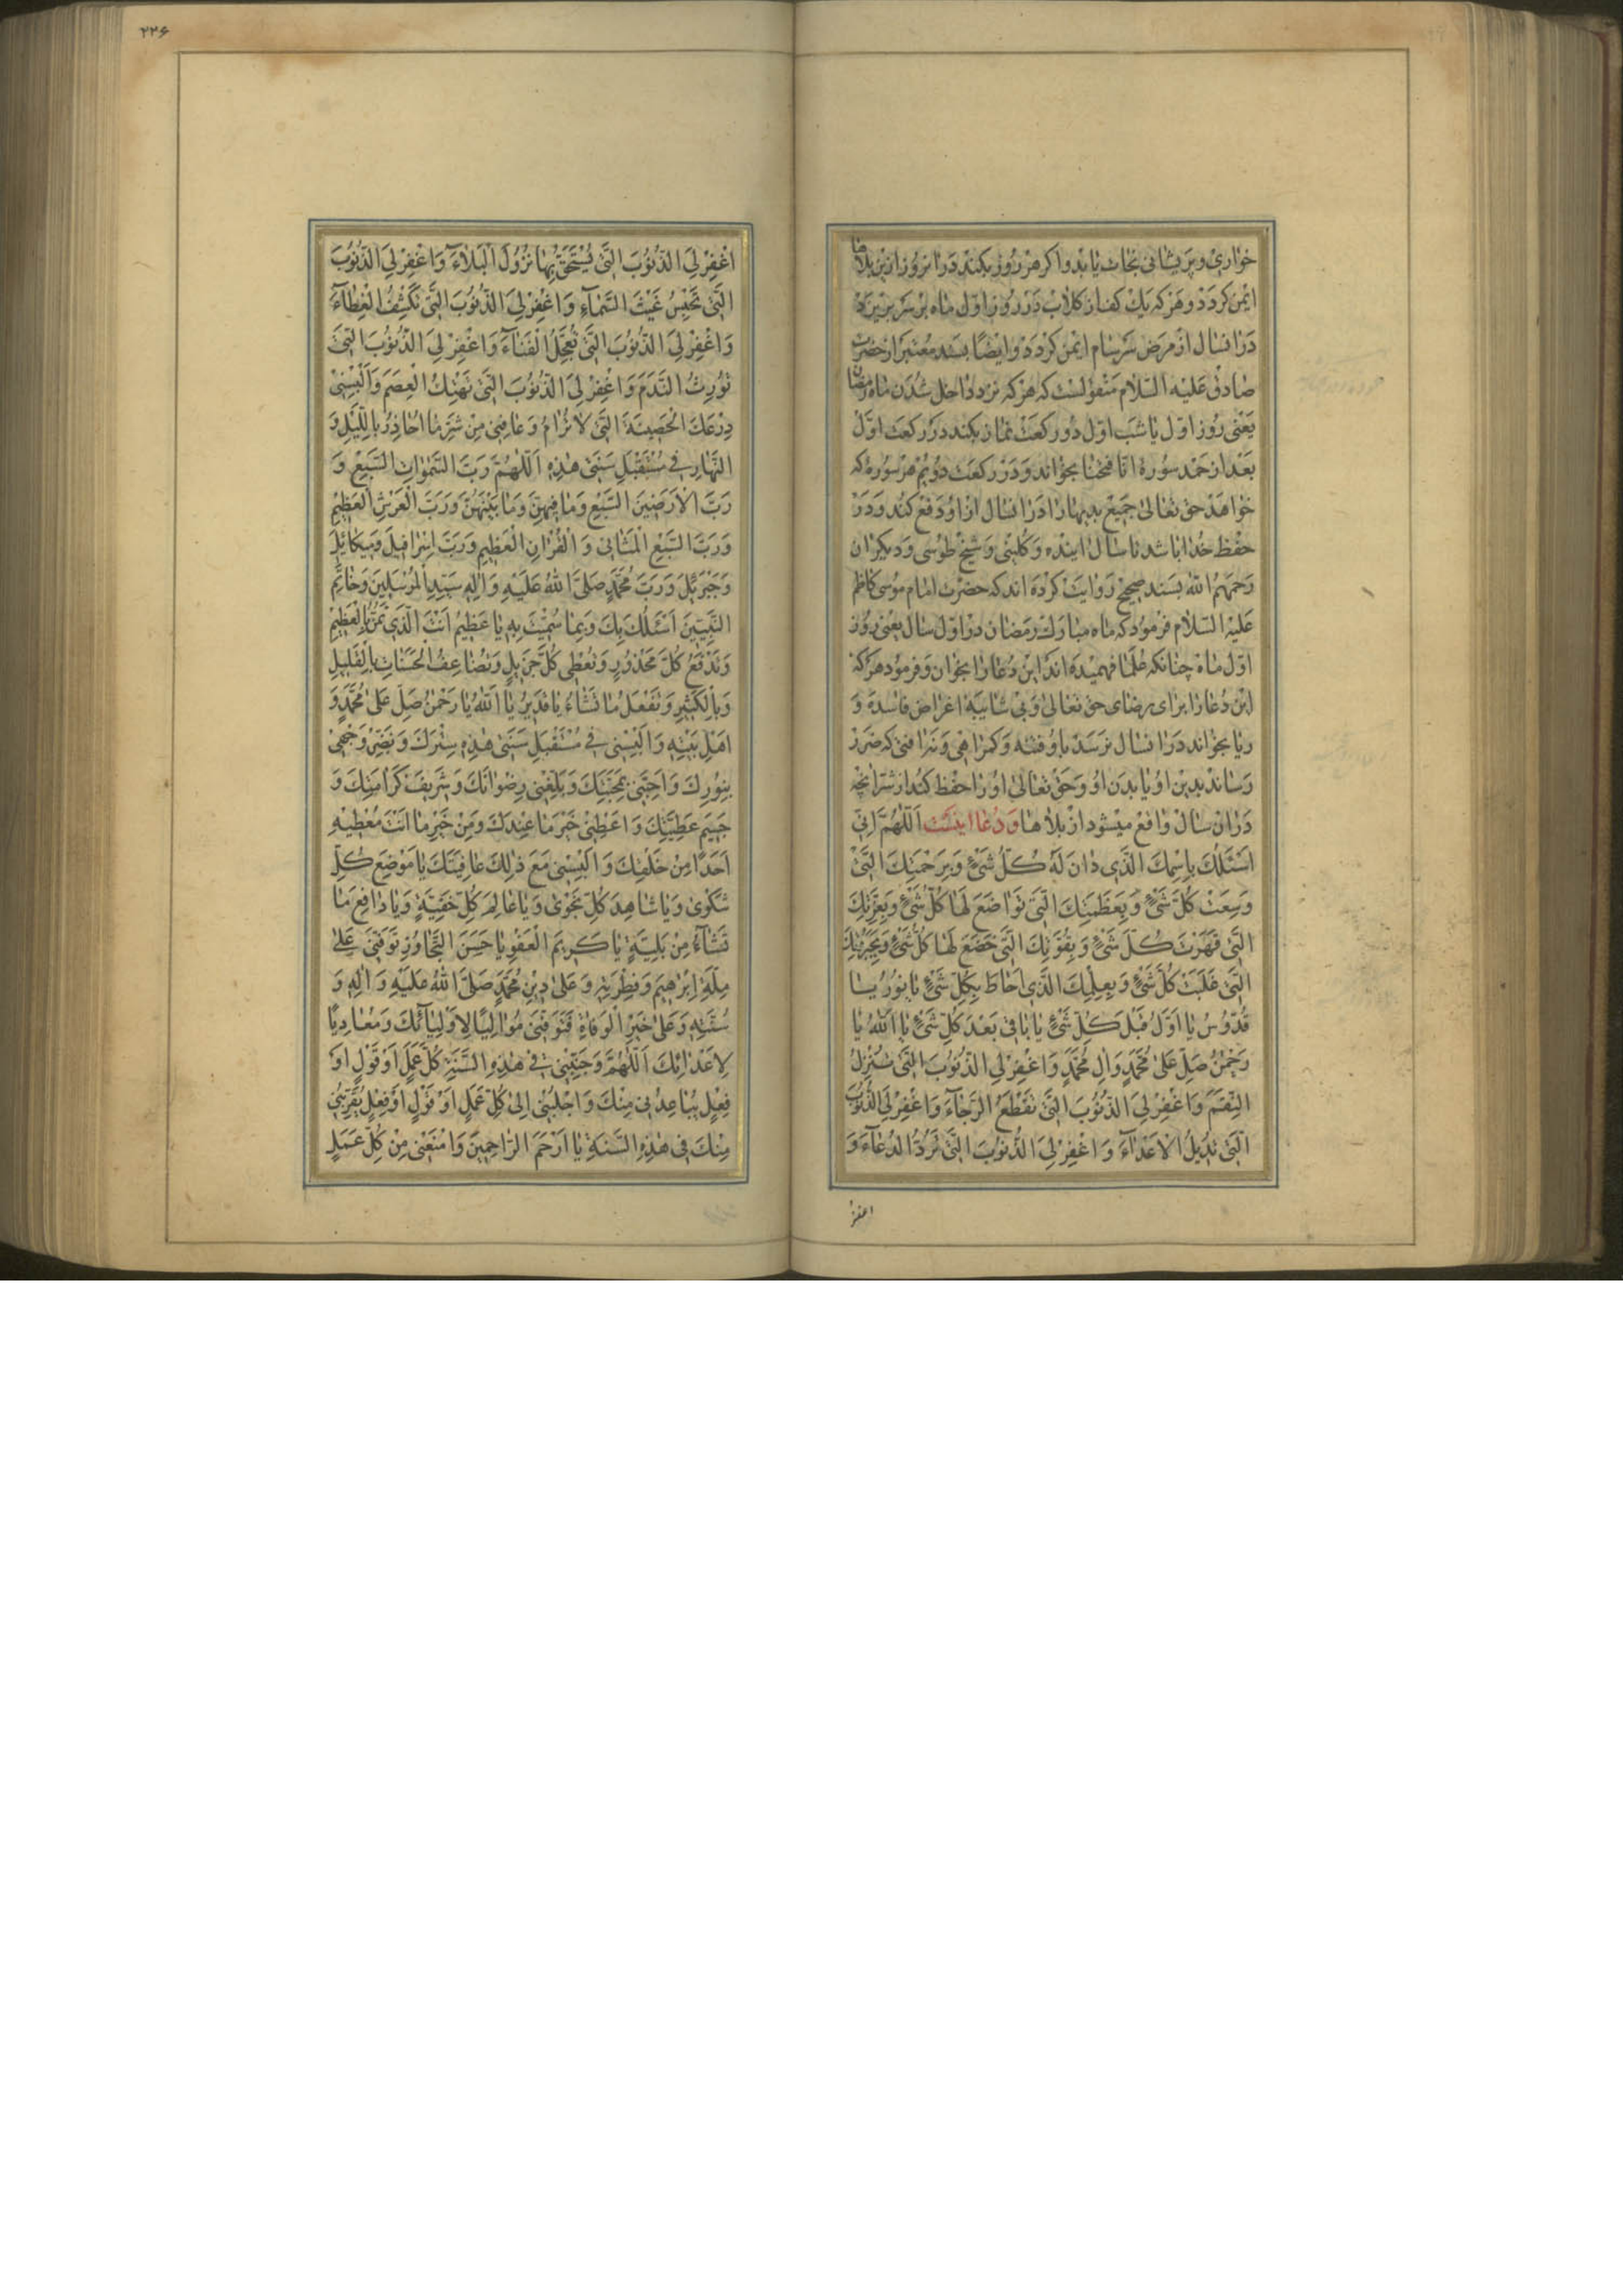 خواری و پریشانی نجات یابد و اکر هر روز بکند در ان روز ازین بلاها
ایمن کردد و هر که یک کف از کلاب در روز اول ماه بر سر بریزد
در انسال از مرض سرسام ایمن کردد و ایضا بسند معتبر از حضرت
صادق علیه السلام منقولست که هر که نزد داخل شدن ماه رمضان
یعنی روز اول یا شب اول دو رکعت نماز بکند در رکعت اول
بعد از حمد سوره انا فتحنا بخواند و در رکعت دویم هر سوره که
خواهد حق تعالی جمیع بدیها را در انسال از او دفع کند و در
حفظ خدا باشد تا سال اینده و کلینی و شیخ طوسی و دیکران
رحمهم الله بسند صحیح روایت کرده اند که حضرت امام موسی کاظم
علیه السلام فرمود که ماه مبارک رمضان در اول سال یعنی روز
اول ماه چنانکه علما فهمیده اند این دعا را بخوان و فرمود هر که
این دعا را برای رضای حق تعالی و بی شایبه اغراض فاسده و
ریا بخواند در انسال نرسد باو فتنه و کمراهی و نه افتی که ضرر
رساند بدین او یا بدن او و حق تعالی او را حفظ کند از شر انچه
در ان سال واقع میشود از بلاها و دعا اینست اَللّهُمَّ اِنّی
اَسْئَلُكَ بِاسْمِكَ الَّذی دانَ لَهُ كُلُّ شَیْءٍ وَبِرَحْمَتِكَ الَّتی
وَسِعَتْ كُلَّ شَیْءٍ وَبِعَظَمَتِكَ الَّتی تَواضَعَ لَها كُلُّ شَیْءٍ وَبِعِزَّتِكَ
الَّتی قَهَرَتْ كُلَّ شَیْءٍ وَبِقُوَّتِكَ الَّتی خَضَعَ لَها كُلُّ شَیْءٍ وَبِجَبَرُوتِكَ
الَّتی غَلَبَتْ كُلَّ شَیْءٍ وَبِعِلْمِكَ الَّذی اَحاطَ بِكُلِّ شَیْءٍ یا نُورُ یا
قُدُّوسُ یا اَوَّلُ قَبْلَ كُلِّ شَیْءٍ یا باقی بَعْدَ كُلِّ شَیْءٍ یا اَللهُ یا
رَحْمنُ صَلِّ عَلی مُحَمَّدٍ وَالِ مُحَمَّدٍ وَاغْفِرْ لِیَ الذُّنُوبَ الَّتی تُنْزِلُ
النِّقَمَ وَاغْفِرْ لِیَ الذُّنُوبَ الَّتی تَقْطَعُ الرَّجآءَ وَاغْفِرْ لِیَ الذُّنُوبَ
الَّتی تُدیلُ الاَعْدآءَ وَاغْفِرْ لِیَ الذُّنُوبَ الَّتی تَرُدُّ الدُّعآءَ وَ
اغفر
۲۲۶
اغْفِرْ لِیَ الذُّنُوبَ الَّتی یُسْتَحَقُّ بِها نُزُولُ الْبَلاءَ وَاغْفِرْ لِیَ الذُّنُوبَ
الَّتی تَحْبِسُ غَیْثَ السَّمآءِ وَاغْفِرْ لِیَ الذُّنُوبَ الَّتی تَكْشِفُ الْغِطآءَ
وَاغْفِرْ لِیَ الذُّنُوبَ الَّتی تُعَجِّلُ الْفَنآءَ وَاغْفِرْ لِیَ الذُّنُوبَ الَّتی
تُورِثُ النَّدَمَ وَاغْفِرْ لِیَ الذُّنُوبَ الَّتی تَهْتِكُ الْعِصَمَ وَاَلْبِسْنی
دِرْعَكَ الْحَصینَةَ الَّتی لا تُرامُ وَعافِنی مِنْ شَرِّ ما اُحاذِرُ بِاللَّیْلِ وَ
النَّهارِ فی مُسْتَقْبَلِ سَنَتی هذِهِ اَللّهُمَّ رَبَّ السَّمواتِ السَّبْعِ وَ
رَبَّ الاَرَضینَ السَّبْعِ وَما فیهِنَّ وَما بَیْنَهُنَّ وَرَبَّ الْعَرْشِ الْعَظیمِ
وَرَبَّ السَّبْعِ الْمَثانی وَالْقُرْانِ الْعَظیمِ وَرَبَّ اِسْرافیلَ وَمیكائیلَ
وَجَبْرَئیلَ وَرَبَّ مُحَمَّدٍ صَلَّی اللهُ عَلَیْهِ وَالِهِ سَیِّدِ الْمُرْسَلینَ وَخاتَمِ
النَّبِیّینَ اَسْئَلُكَ بِكَ وَبِما سَمَّیْتَ بِهِ یا عَظیمُ اَنْتَ الَّذی تَمُنُّ بِالْعَظیمِ
وَتَدْفَعُ كُلَّ مَحْذُورٍ وَتُعْطی كُلَّ جَزیلٍ وَتُضاعِفُ الْحَسَناتِ بِالْقَلیلِ
وَبِالْكَثیرِ وَتَفْعَلُ ما تَشآءُ یا قَدیرُ یا اَللهُ یا رَحْمنُ صَلِّ عَلی مُحَمَّدٍ وَ
اَهْلِ بَیْتِهِ وَاَلْبِسْنی فی مُسْتَقْبَلِ سَنَتی هذِهِ سِتْرَكَ وَنَضِّرْ وَجْهی
بِنُورِكَ وَاَحِبَّنی بِمَحَبَّتِكَ وَبَلِّغْنی رِضْوانَكَ وَشَریفَ كَرامَتِكَ وَ
جَسیمَ عَطِیَّتِكَ وَاَعْطِنی خَیْرَ ما عِنْدَكَ وَمِنْ خَیْرِ ما اَنْتَ مُعْطیهِ
اَحَدًا مِنْ خَلْقِكَ وَاَلْبِسْنی مَعَ ذلِكَ عافِیَتَكَ یا مَوْضِعَ كُلِّ
شَكْوی وَیا شاهِدَ كُلِّ نَجْوی وَیا عالِمَ كُلِّ خَفِیَّةٍ وَیا دافِعَ ما
تَشآءُ مِنْ بَلِیَّةٍ یا كَریمَ الْعَفْوِ یا حَسَنَ التَّجاوُزِ تَوَفَّنی عَلی
مِلَّةِ اِبْرهیمَ وَفِطْرَتِهِ وَعَلی دینِ مُحَمَّدٍ صَلَّی اللهُ عَلَیْهِ وَالِهِ وَ
سُنَّتِهِ وَعَلی خَیْرِ الْوَفاةِ فَتَوَفَّنی مُوالِیًا لِاَوْلِیآئِكَ وَمُعادِیًا
لِاَعْدائِكَ اَللّهُمَّ وَجَنِّبْنی فی هذِهِ السَّنَةِ كُلَّ عَمَلٍ اَوْ قَوْلٍ اَوْ
فِعْلٍ یُباعِدُنی مِنْكَ وَاجْلِبْنی اِلی كُلِّ عَمَلٍ اَوْ قَوْلٍ اَوْ فِعْلٍ یُقَرِّبُنی
مِنْكَ فی هذِهِ السَّنَةِ یا اَرْحَمَ الرّاحِمینَ وَامْنَعْنی مِنْ كُلِّ عَمَلٍ